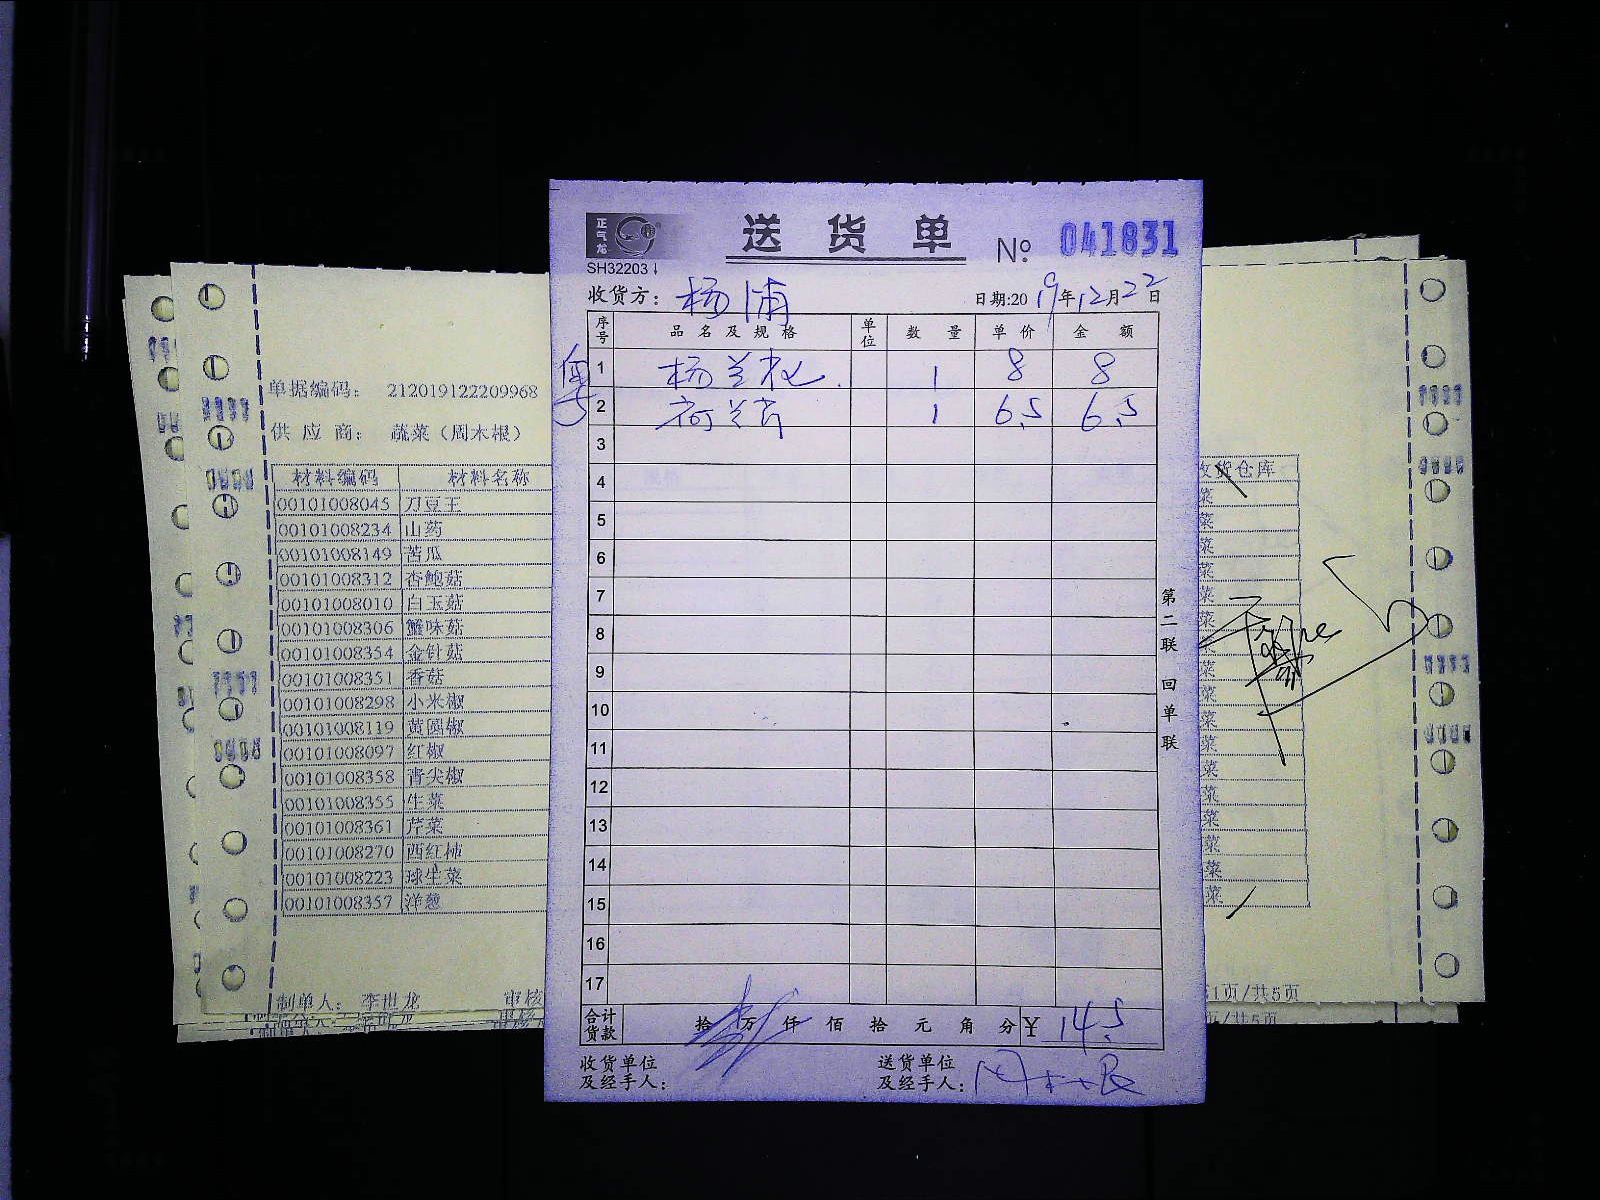 正气龙
送货单
№ 041831
SH32203
收货方： 杨浦
日期:2019年12月22日
序号 品名及规格 单位 数量 单价 金额
1 杨兰 1 8 8
2 荷兰 1 6.5 6.5
3
4
5
6
7
8
9
10
11
12
13
14
15
16
17
合计货款 拾万仟佰拾元角分 ¥ 14.5
收货单位及经手人：
送货单位及经手人： 周木根
第二联 回单联
单据编码： 212019122209968
供应商： 蔬菜（周木根）
材料编码 材料名称
00101008045 刀豆王
00101008234 山药
00101008149 苦瓜
00101008312 杏鲍菇
00101008010 白玉菇
00101008306 蟹味菇
00101008354 金针菇
00101008351 香菇
00101008298 小米椒
00101008119 黄圆椒
00101008097 红椒
00101008358 青尖椒
00101008355 生菜
00101008361 芹菜
00101008270 西红柿
00101008223 球生菜
00101008357 洋葱
制单人： 李世龙 审核
收货仓库
菜
菜
菜
菜
菜
菜
菜
菜
菜
菜
菜
菜
菜
菜
菜
菜
菜
1页/共5页
页/共5页